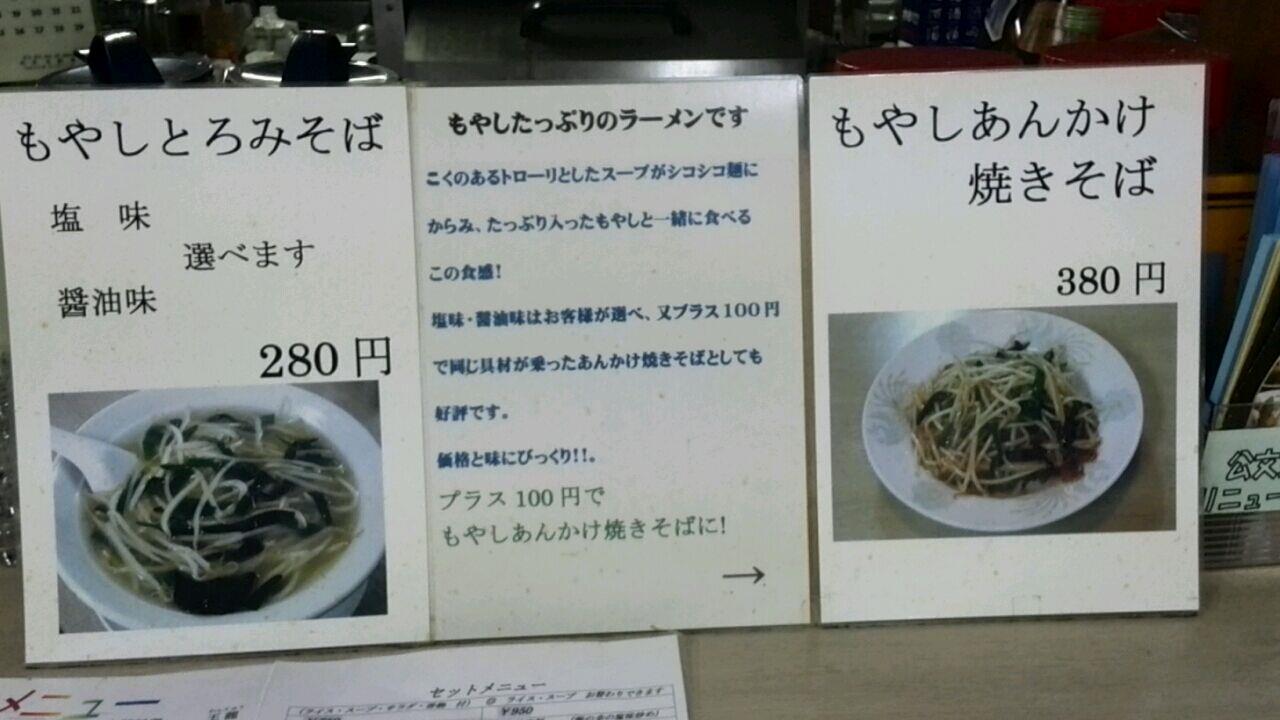 もやしとろみそば
塩 味
選べます
醤油味
280 円
もやしたっぷりのラーメンです
こくのあるトローリとしたスープがシコシコ麺に
からみ、たっぷり入ったもやしと一緒に食べる
この食感!
塩味・醤油味はお客様が選べ、又プラス100円
で同じ具材が乗ったあんかけ焼きそばとしても
好評です。
価格と味にびっくり!!。
プラス 100 円で
もやしあんかけ焼きそばに!
→
もやしあんかけ
焼きそば
380 円
公文
リニュー
メニュー
セットメニュー
(ライス・スープ・サラダ・漬物 付) ◎ ライス・スープ お替わりできます
¥950